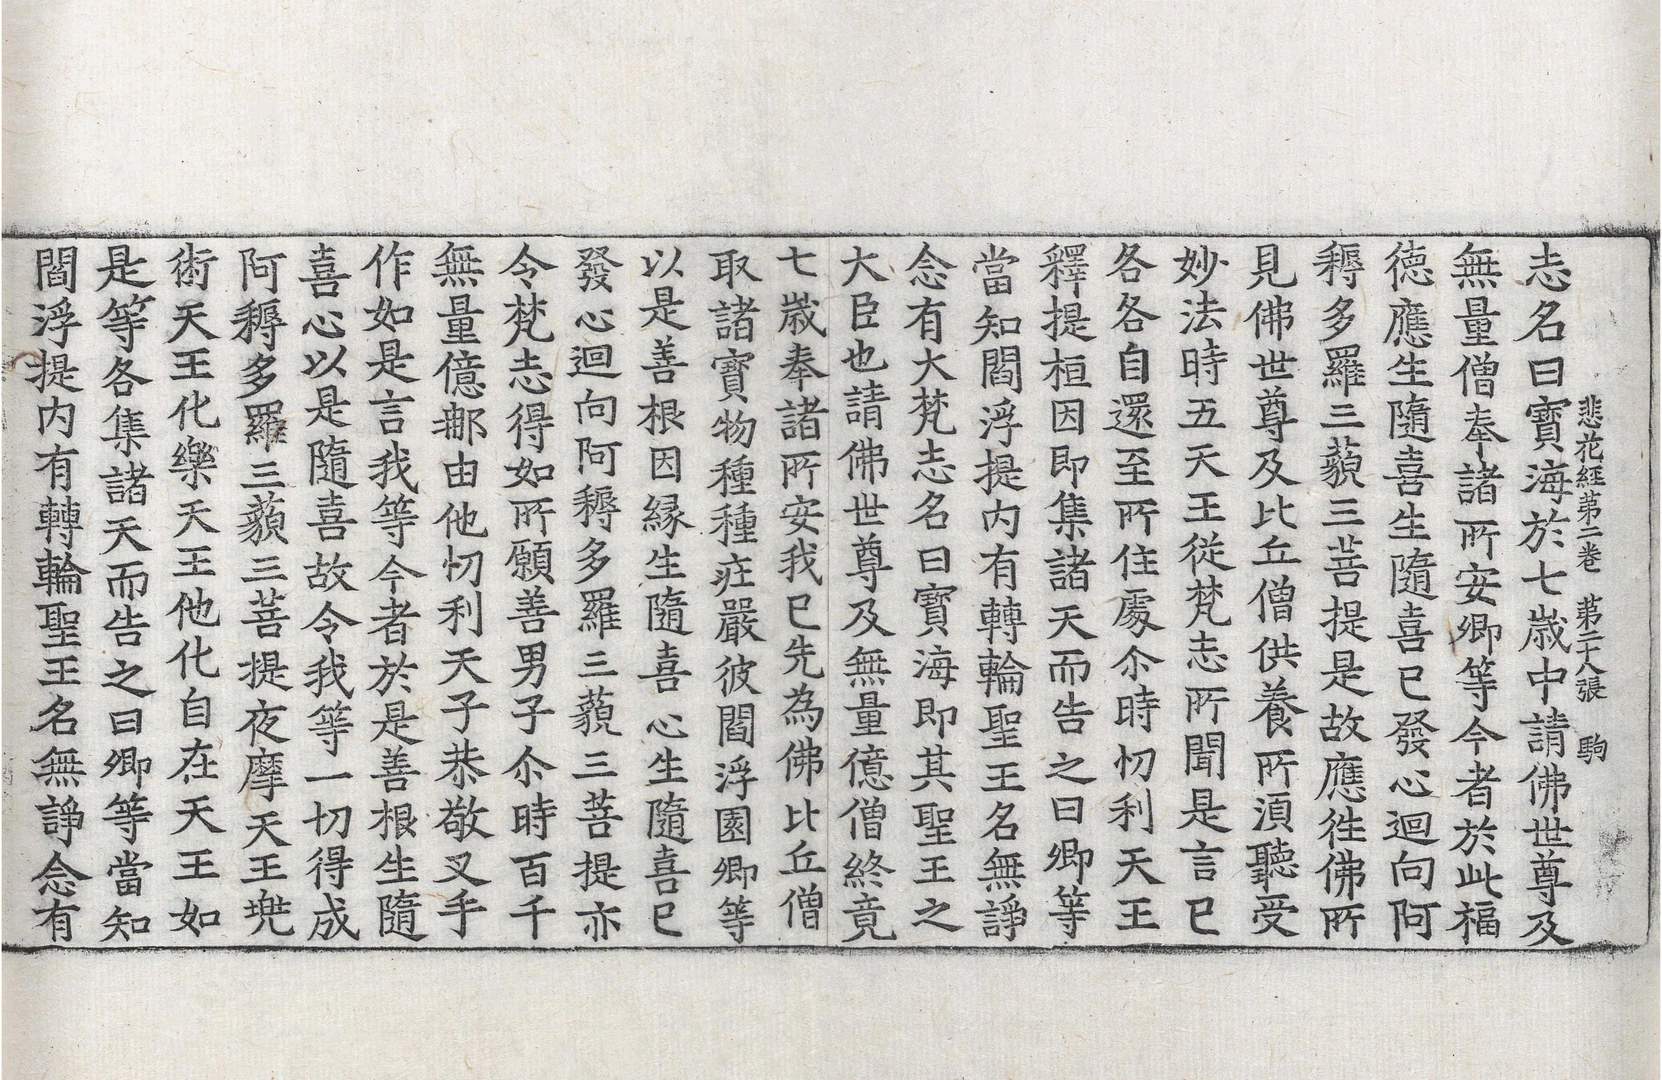 悲花經第二卷　第二十八張　駒
志名曰寶海於七歲中請佛世尊及
無量僧奉諸所安卿等今者於此福
德應生隨喜生隨喜已發心迴向阿
耨多羅三藐三菩提是故應往佛所
見佛世尊及比丘僧供養所須聽受
妙法時五天王從梵志所聞是言已
各各自還至所住處尒時忉利天王
釋提桓因即集諸天而告之曰卿等
當知閻浮提內有轉輪聖王名無諍
念有大梵志名曰寶海即其聖王之
大臣也請佛世尊及無量億僧終竟
七歲奉諸所安我已先為佛比丘僧
取諸寶物種種莊嚴彼閻浮園卿等
以是善根因緣生隨喜心生隨喜已
發心迴向阿耨多羅三藐三菩提亦
令梵志得如所願善男子尒時百千
無量億那由他忉利天子恭敬叉手
作如是言我等今者於是善根生隨
喜心以是隨喜故令我等一切得成
阿耨多羅三藐三菩提夜摩天王兠
術天王化樂天王他化自在天王如
是等各集諸天而告之曰卿等當知
閻浮提內有轉輪聖王名無諍念有